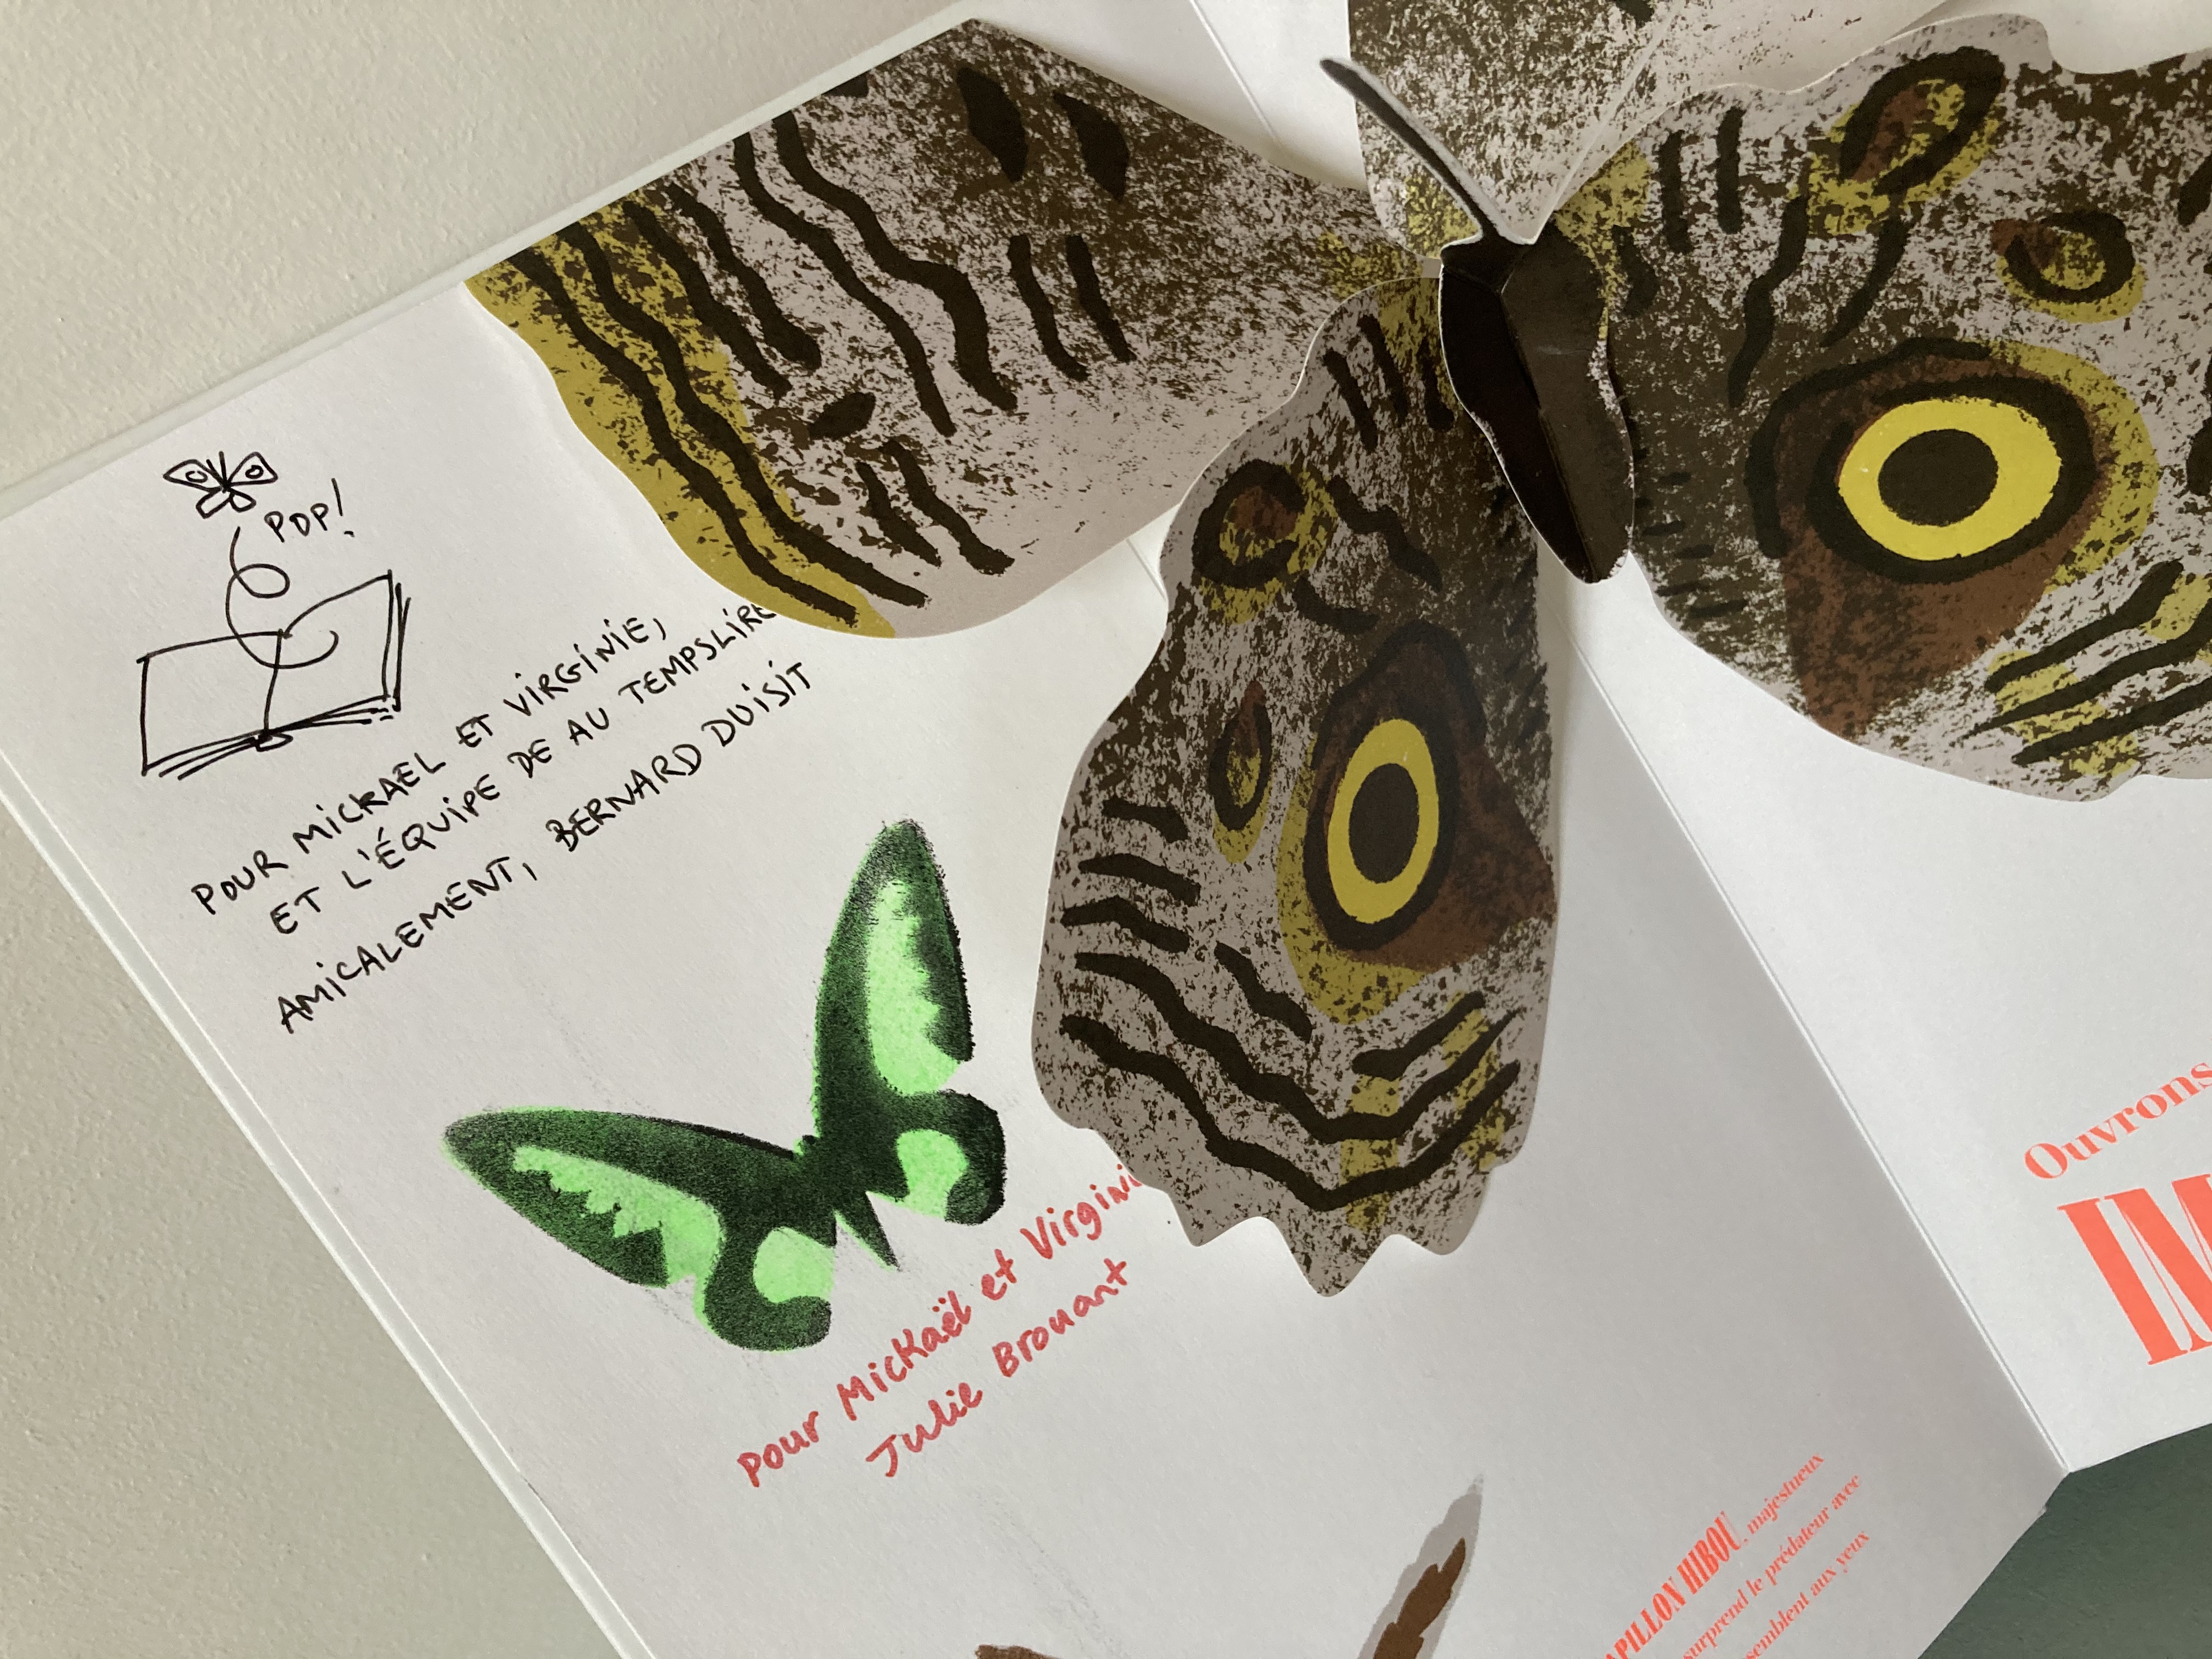 POP!
POUR MICKAEL ET VIRGINIE,
ET L'ÉQUIPE DE AU TEMPSLIRE
AMICALEMENT, BERNARD DUISIT
pour Mickaël et Virgini
Julie Brouant
Ouvrons
IM
APILLON HIBOU, majestueux
surprend le prédateur avec
semblent aux yeux